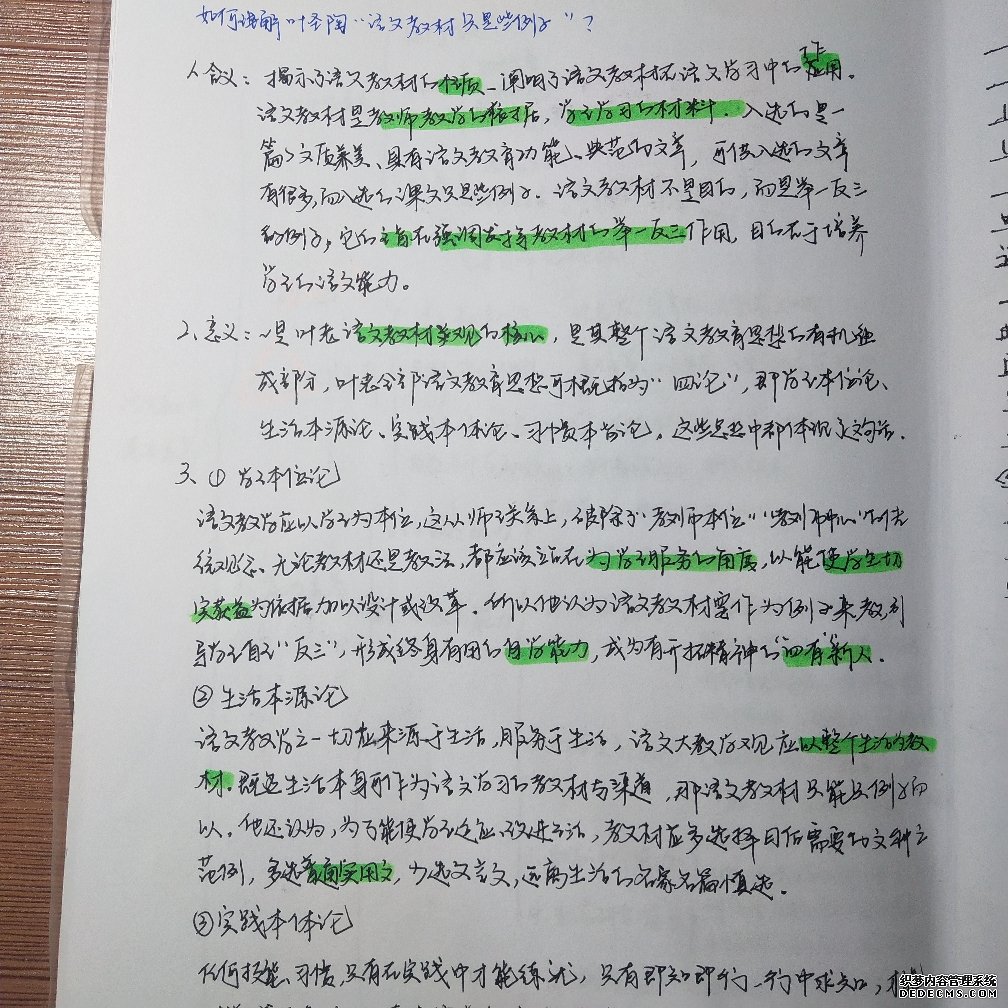 如何理解叶圣陶“语文教材只是些例子”？
1.含义：揭示了语文教材的性质，阐明了语文教材在语文学习中的作用。
语文教材是教师教学的依据，学生学习的材料。入选的是一
篇篇文质兼美、具有语文教育功能、典范的文章，可供入选的文章
有很多，而入选的课文只是些例子。语文教材不是目的，而是举一反三
的例子，它的主旨在强调发挥教材的举一反三作用，目的在于培养
学生的语文能力。
2、意义：~是叶老语文教材观的核心，是其整个语文教育思想的有机组
成部分，叶老全部语文教育思想可概括为“四论”，即学生本位论、
生活本源论、实践本体论、习惯本旨论，这些思想中都体现了这句话。
3、①学生本位论
语文教学应以学生为本位，这从师生关系上，破除了“教师本位”“教师中心”的传
统观念。无论教材还是教法，都应该立站在为学生服务的角度，以能使学生切
实获益为依据加以设计或改革。所以他认为语文教材要作为例子来教，引
导学生自己“反三”，形成终身有用的自学能力，成为有开拓精神的“四有”新人。
②生活本源论
语文教学之一切应来源于生活，服务于生活，语文大教学观应以整个生活为教
材。既然生活本身可作为语文学习的教材与渠道，那语文教材只能是例子而
以。他还认为，为了能使学生适应、改进生活，教材应多选择日后需要的文种之
范例，多选普通实用文，少选文言文，远离生活的名家名篇慎选。
③实践本体论
任何技能、习惯，只有在实践中才能练就，只有即知即行，行中求知，
织梦内容管理系统
DEDECMS.COM